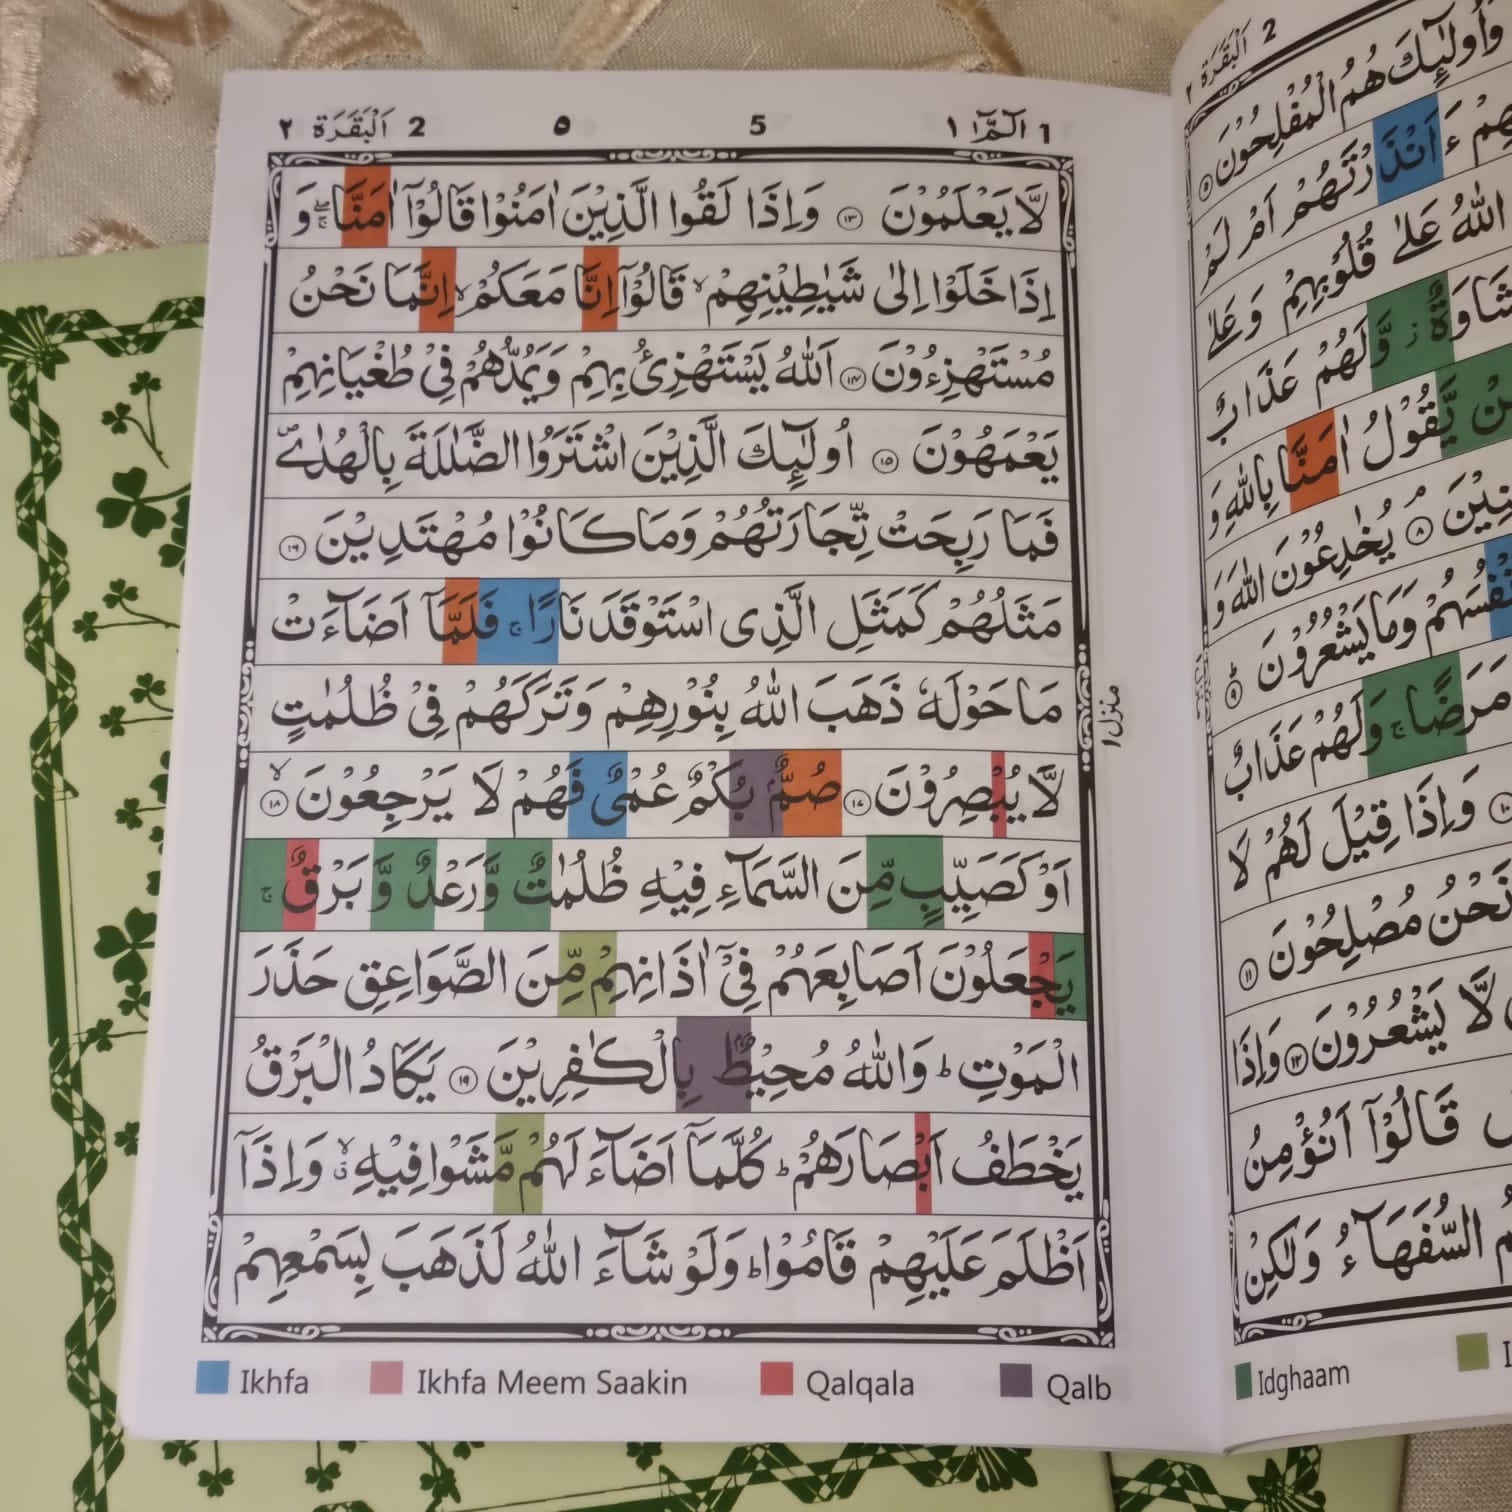 1 الٓمّٓ ١ 5 ٥ 2 اَلْبَقَرَة ٢
لَّا يَعْلَمُوْنَ ۝١٣ وَاِذَا لَقُوا الَّذِيْنَ اٰمَنُوْا قَالُوْٓا اٰمَنَّا ۚ وَ
اِذَا خَلَوْا اِلٰى شَيٰطِيْنِهِمْ ۙ قَالُوْٓا اِنَّا مَعَكُمْ ۙ اِنَّمَا نَحْنُ
مُسْتَهْزِءُوْنَ ۝١٤ اَللّٰهُ يَسْتَهْزِئُ بِهِمْ وَيَمُدُّهُمْ فِيْ طُغْيَانِهِمْ
يَعْمَهُوْنَ ۝١٥ اُولٰٓئِكَ الَّذِيْنَ اشْتَرَوُا الضَّلٰلَةَ بِالْهُدٰى ۪
فَمَا رَبِحَتْ تِّجَارَتُهُمْ وَمَا كَانُوْا مُهْتَدِيْنَ ۝١٦
مَثَلُهُمْ كَمَثَلِ الَّذِى اسْتَوْقَدَ نَارًا ۚ فَلَمَّآ اَضَآءَتْ
مَا حَوْلَهٗ ذَهَبَ اللّٰهُ بِنُوْرِهِمْ وَتَرَكَهُمْ فِيْ ظُلُمٰتٍ
لَّا يُبْصِرُوْنَ ۝١٧ صُمٌّۢ بُكْمٌ عُمْيٌ فَهُمْ لَا يَرْجِعُوْنَ ۝١٨ ۙ
اَوْ كَصَيِّبٍ مِّنَ السَّمَآءِ فِيْهِ ظُلُمٰتٌ وَّرَعْدٌ وَّ بَرْقٌ ۚ
يَجْعَلُوْنَ اَصَابِعَهُمْ فِيْٓ اٰذَانِهِمْ مِّنَ الصَّوَاعِقِ حَذَرَ
الْمَوْتِ ؕ وَاللّٰهُ مُحِيْطٌۢ بِالْكٰفِرِيْنَ ۝١٩ يَكَادُ الْبَرْقُ
يَخْطَفُ اَبْصَارَهُمْ ؕ كُلَّمَآ اَضَآءَ لَهُمْ مَّشَوْا فِيْهِ ۙ ق وَاِذَآ
اَظْلَمَ عَلَيْهِمْ قَامُوْا ؕ وَلَوْ شَآءَ اللّٰهُ لَذَهَبَ بِسَمْعِهِمْ
منزل ١
Ikhfa Ikhfa Meem Saakin Qalqala Qalb
2 اَلْبَقَرَة ٢
وَاُولٰٓئِكَ هُمُ الْمُفْلِحُوْنَ ۝٥
ءَاَنْذَرْتَهُمْ اَمْ لَمْ
اللّٰهُ عَلٰى قُلُوْبِهِمْ وَعَلٰى
وَّلَهُمْ عَذَابٌ
يَّقُوْلُ اٰمَنَّا بِاللّٰهِ وَ
۝٨ يُخٰدِعُوْنَ اللّٰهَ وَ
وَمَا يَشْعُرُوْنَ ۝٩
مَرَضًا ۚ وَلَهُمْ عَذَابٌ
وَاِذَا قِيْلَ لَهُمْ لَا
نَحْنُ مُصْلِحُوْنَ ۝١١
لَّا يَشْعُرُوْنَ ۝١٢ وَاِذَا
قَالُوْٓا اَنُؤْمِنُ
السُّفَهَآءُ وَلٰكِنْ
Idghaam